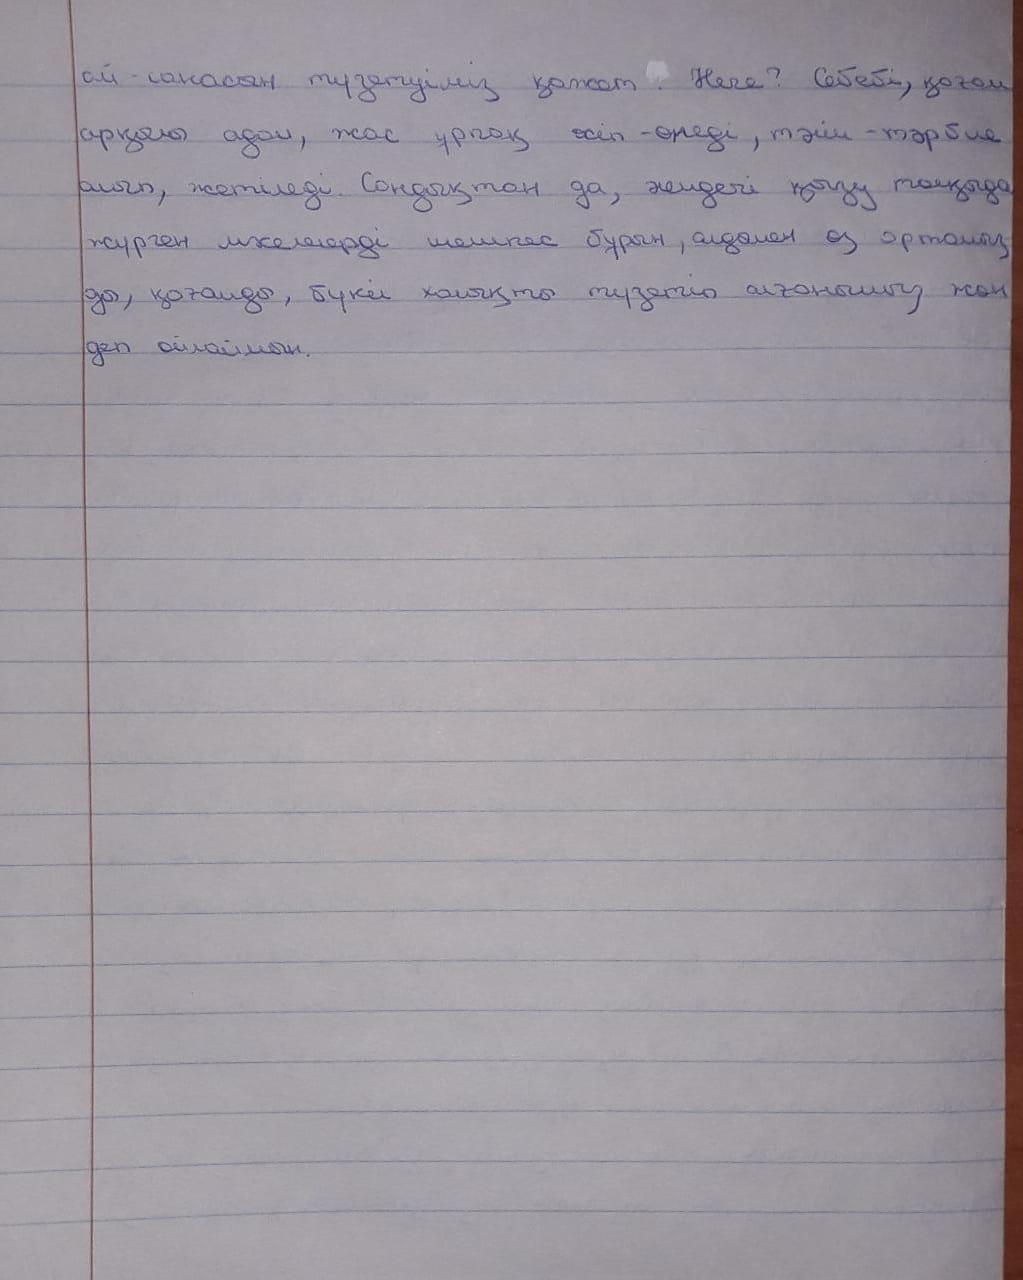 ой-санасын түзетуіміз қажет. Неге? Себебі, қоғам
арқылы адам, жас ұрпақ өсіп-өнеді, тәлім-тәрбие
алып, жетіледі. Сондықтан да, жендегі қызу талқыда
жүрген мәселелерді шешпес бұрын, алдымен өз ортамыз
ды, қоғамды, бүкіл халықты түзетіп алғанымыз жөн
деп ойлаймын.